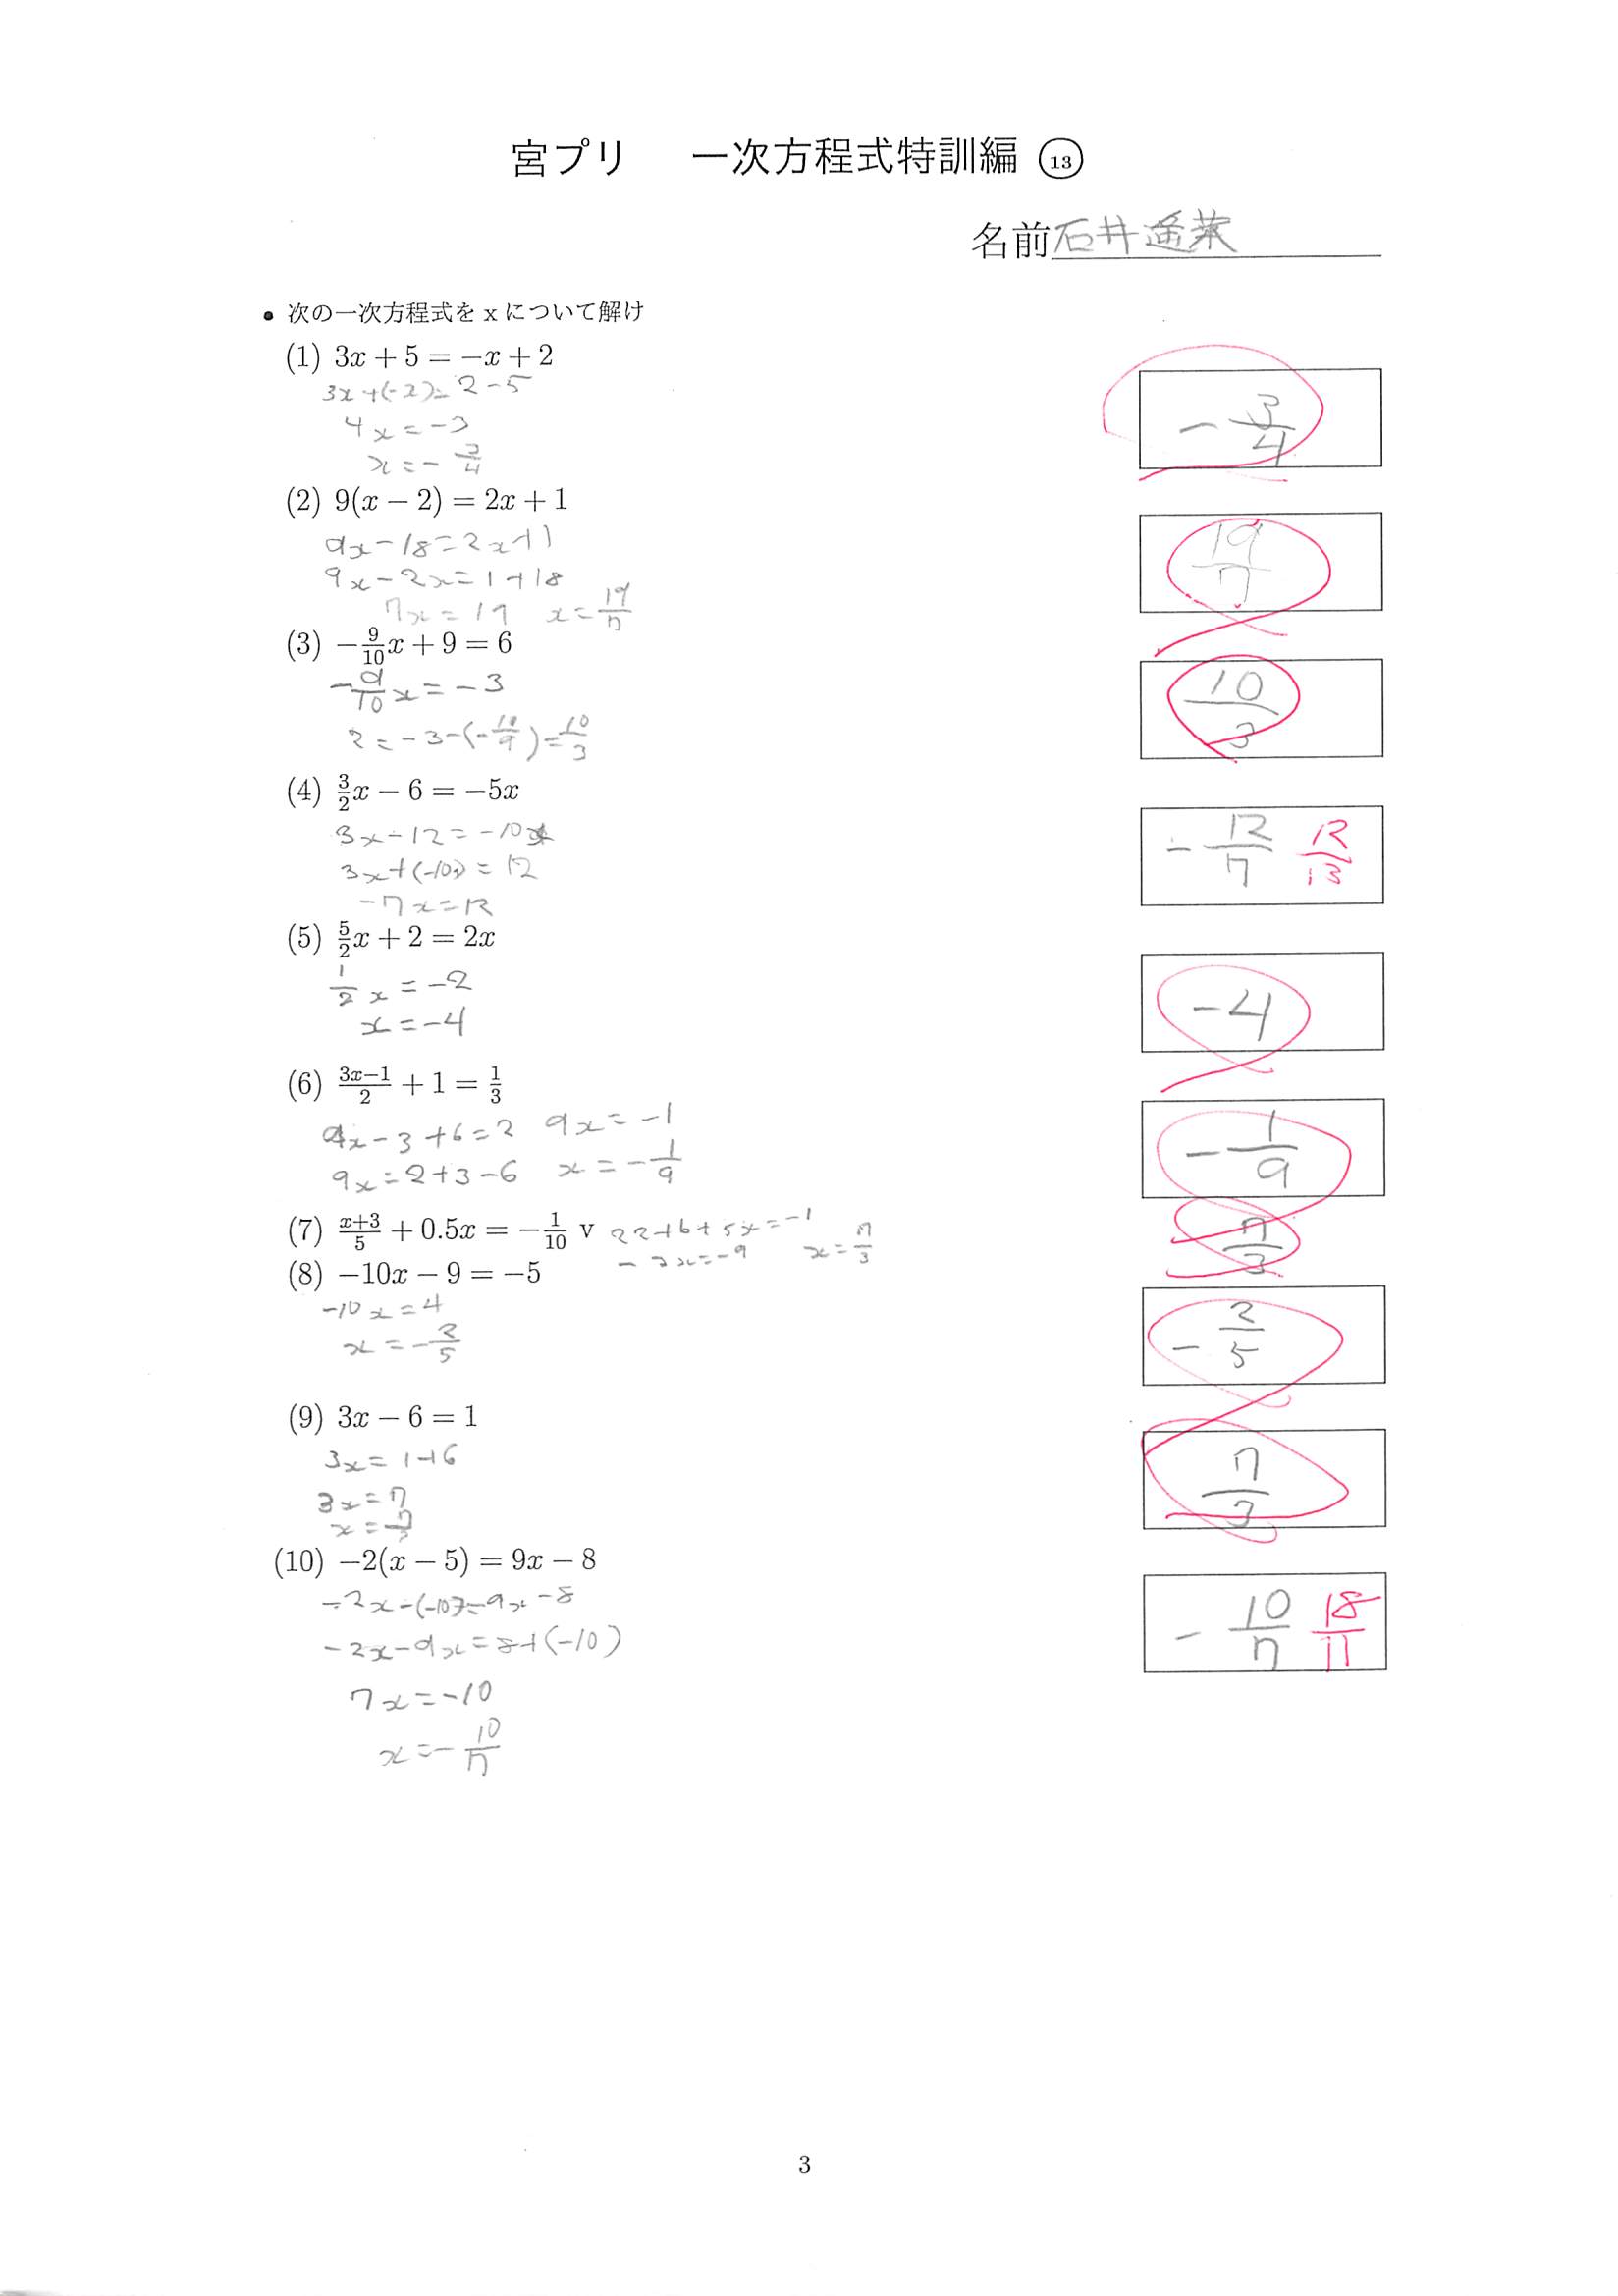 宮プリ 一次方程式特訓編 ⑬
名前 石井遥菜
• 次の一次方程式を x について解け
(1) 3x + 5 = −x + 2
3x+(-x)=2-5
4x=-3
x=-3/4
-3/4
(2) 9(x − 2) = 2x + 1
9x-18=2x+1
9x-2x=1+18
7x=19 x=19/7
19/7
(3) −9/10x + 9 = 6
-9/10x=-3
x=-3-(-10/9)=10/3
10/3
(4) 3/2x − 6 = −5x
3x-12=-10x
3x+(-10x)=12
-7x=12
-12/7 12/13
(5) 5/2x + 2 = 2x
1/2x=-2
x=-4
-4
(6) 3x−1/2 + 1 = 1/3
9x-3+6=2 9x=-1
9x=2+3-6 x=-1/9
-1/9
(7) x+3/5 + 0.5x = −1/10 v 2x+6+5x=-1
-3x=-9 x=7/3
7/3
(8) −10x − 9 = −5
-10x=4
x=-2/5
-2/5
(9) 3x − 6 = 1
3x=1+6
3x=7
x=7/3
7/3
(10) −2(x − 5) = 9x − 8
-2x-(-10)=9x-8
-2x-9x=8+(-10)
7x=-10
x=-10/7
-10/7 18/11
3